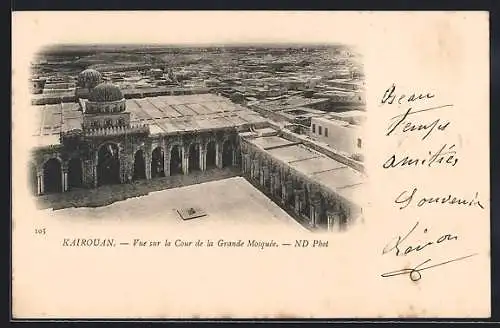 105
KAIROUAN. — Vue sur la Cour de la Grande Mosquée. — ND Phot
Beau
temps
amitiés
Souvenir